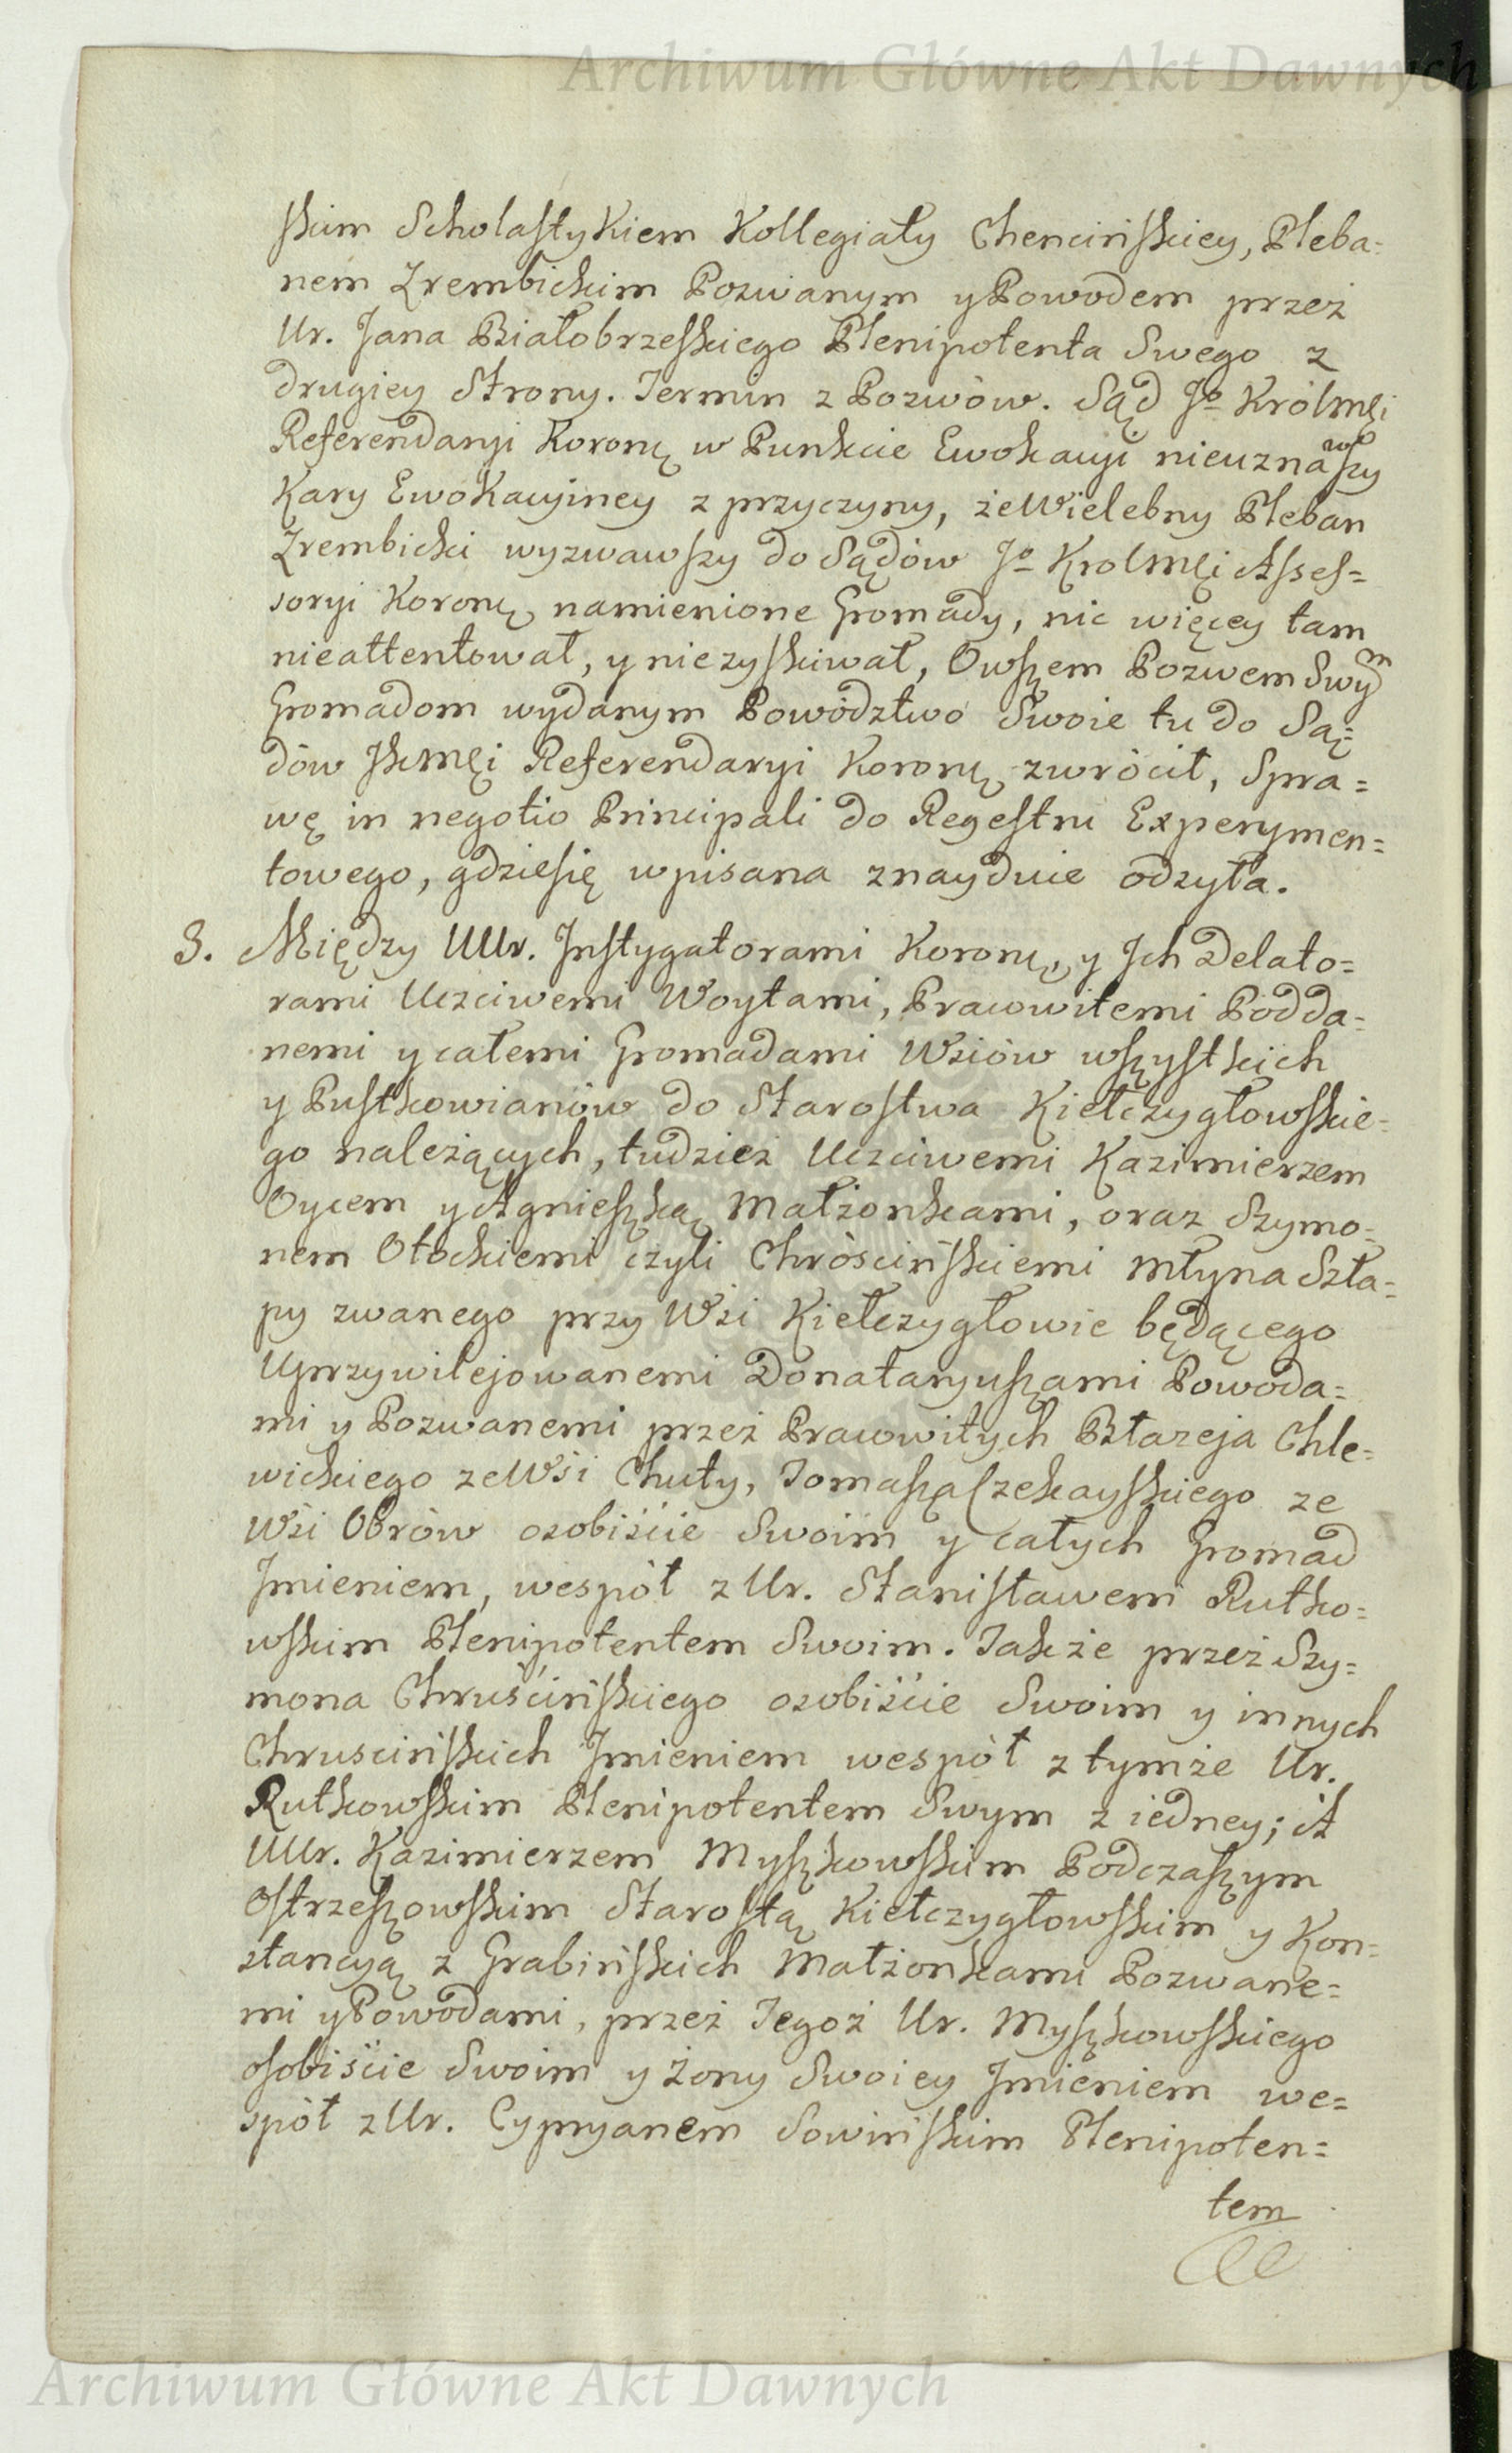 Archiwum Główne Akt Dawnych
skim Scholastykiem Kollegiaty Chencińskiey, Pleba=
nem Zrembickim Pozwanym y Powodem przez
Ur. Jana Białobrzeskiego Plenipotenta Swego z
drugiey Strony. Termin z Pozwów. Sąd Jº Królmęi
Referendaryi Koronę w Punkcie Ewokacyi nieuznawszy
Kary Ewokacyiney z przyczyny, że Wielebny Pleban
Zrembicki wyzwawszy do Sądów Jº Krolmęi Asses=
soryi Koronę namienione Gromady, nic więcey tam
nieattentował, y niezyskiwał, Owszem Pozwem Swym
Gromadom wydanym Powództwo Swoie tu do Są=
dów Jkmęi Referendaryi Koronę zwrócił, Spra=
wę in negotio Principali do Regestru Experymen=
towego, gdziesię wpisana znayduie odzyła.
3. Między UUr. Instygatorami Koronę, y Ich Delato=
rami Uczciwemi Woytami, Pracowitemi Podda=
nemi y całemi Gromadami Wsiów wszystkich
y Pustkowianów do Starostwa Kiełczygłowskie=
go należących, tudzież Uczciwemi Kazimierzem
Oycem y Agnieszką Małżonkami, oraz Szymo=
nem Otockiemi czyli Chróścińskiemi Młyna Szła=
py zwanego przy Wsi Kiełczygłowie będącego
Uprzywilejowanemi Donataryuszami Powoda=
mi y Pozwanemi przez Pracowitych Błażeja Chle=
wickiego ze Wsi Chuty, Tomasza Czekayskiego ze
Wsi Obrów osobiście Swoim y całych Gromad
Imieniem, wespół z Ur. Stanisławem Rutko=
wskim Plenipotentem Swoim. Także przez Szy=
mona Chruścińskiego osobiście Swoim y innych
Chruscińskich Imieniem wespół z tymże Ur.
Rutkowskim Plenipotentem Swym z iedney; A
UUr. Kazimierzem Myszkowskim Podczaszym
Ostrzeszowskim Starostą Kiełczygłowskim y Kon=
stancyą z Grabińskich Małżonkami Pozwane=
mi y Powodami, przez Tegoż Ur. Myszkowskiego
osobiście Swoim y żony Swoiey Imieniem we=
spół z Ur. Cypryanem Sowińskim Plenipoten=
tem
Archiwum Główne Akt Dawnych